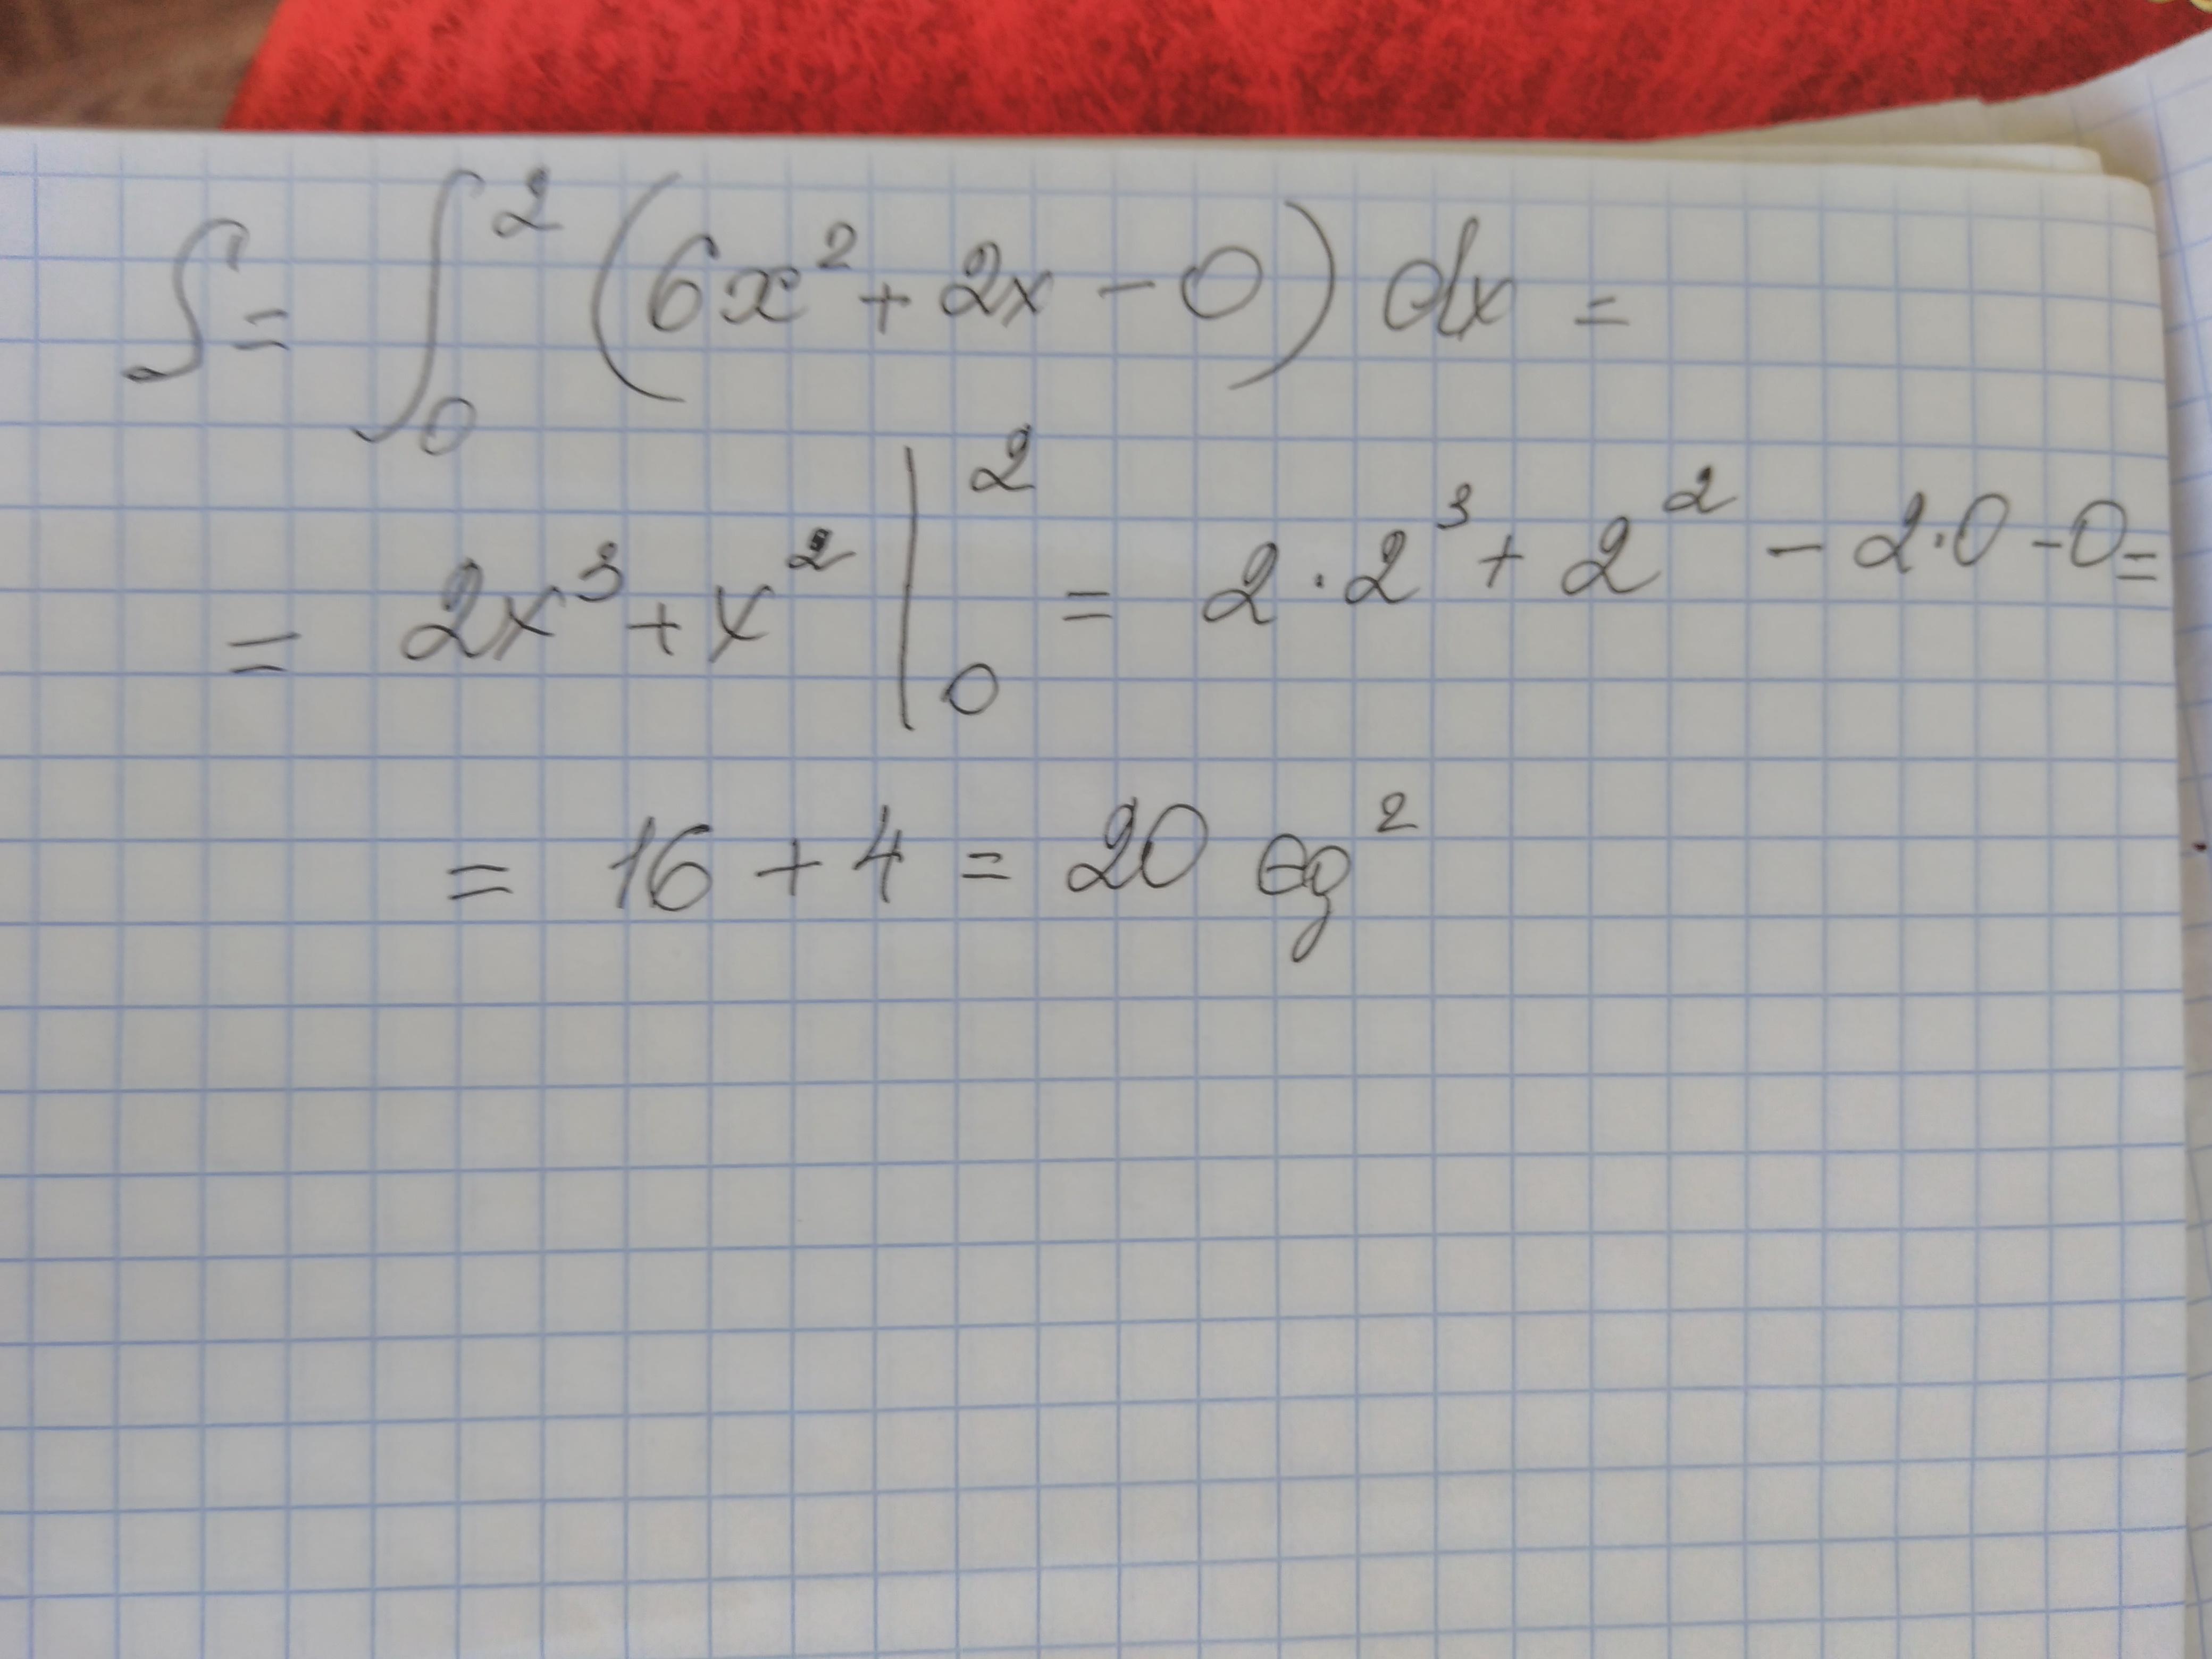 S = ∫₀² (6x² + 2x - 0) dx =
= 2x³ + x² |₀² = 2·2³ + 2² - 2·0 - 0 =
= 16 + 4 = 20 ед²